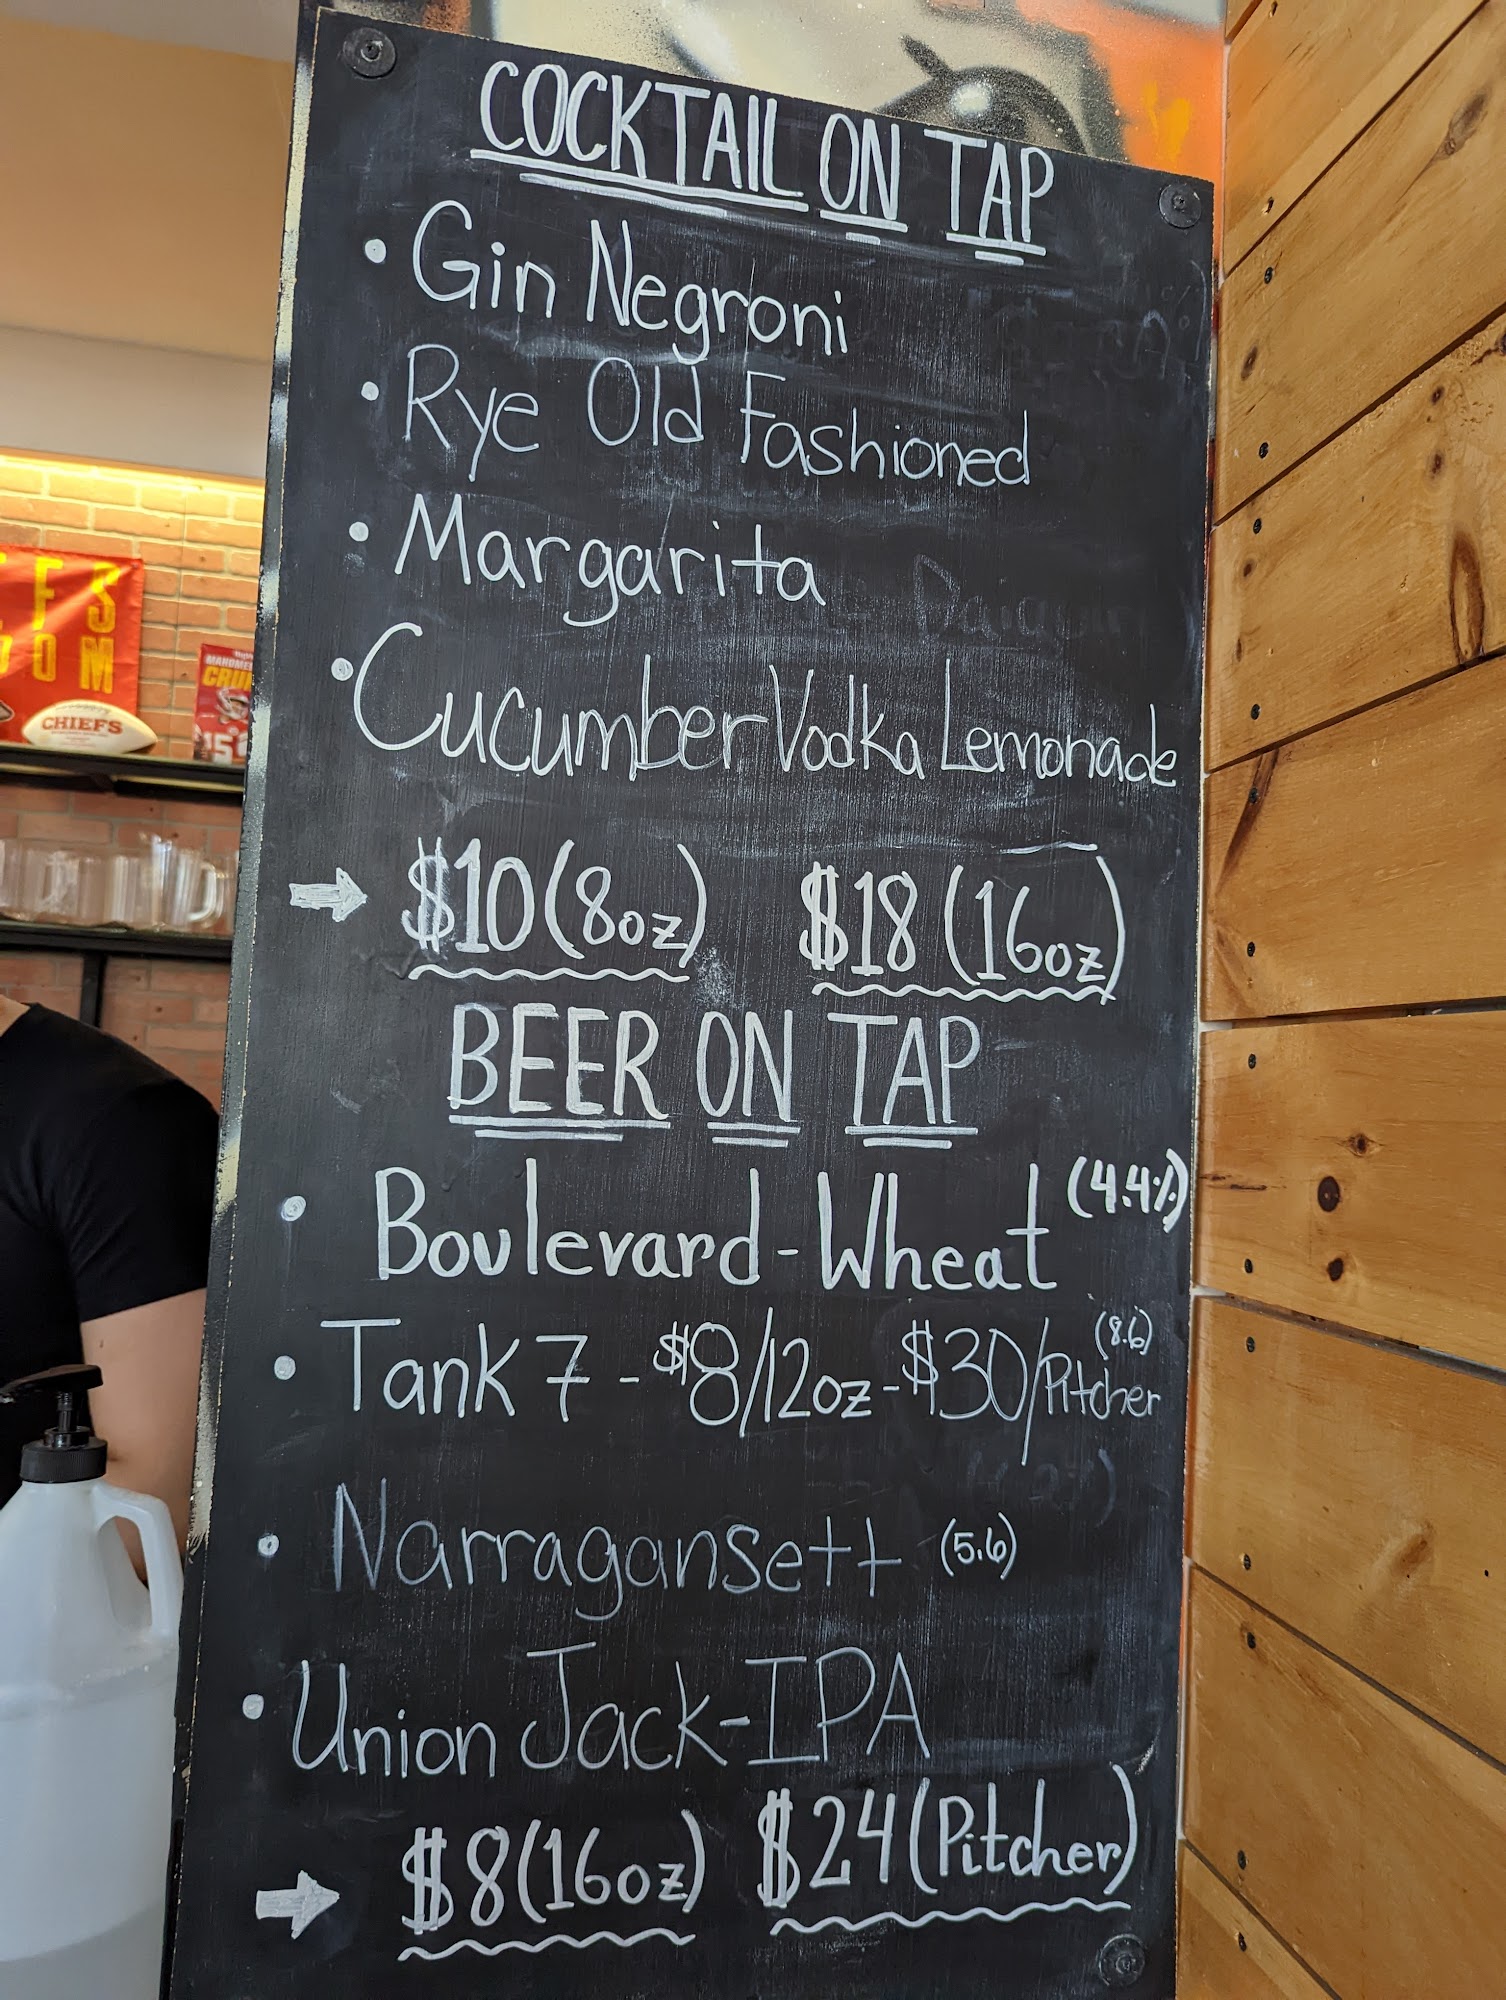 COCKTAIL ON TAP
• Gin Negroni
• Rye Old Fashioned
• Margarita
• Cucumber Vodka Lemonade
$10 (8oz) $18 (16oz)
BEER ON TAP
• Boulevard - Wheat (4.4%)
• Tank 7 - $8/12oz - $30/Pitcher (8.6)
• Narragansett (5.6)
• Union Jack - IPA
$8 (16oz) $24 (Pitcher)
FS
OM
CHIEFS
MAHOME
CRU
15